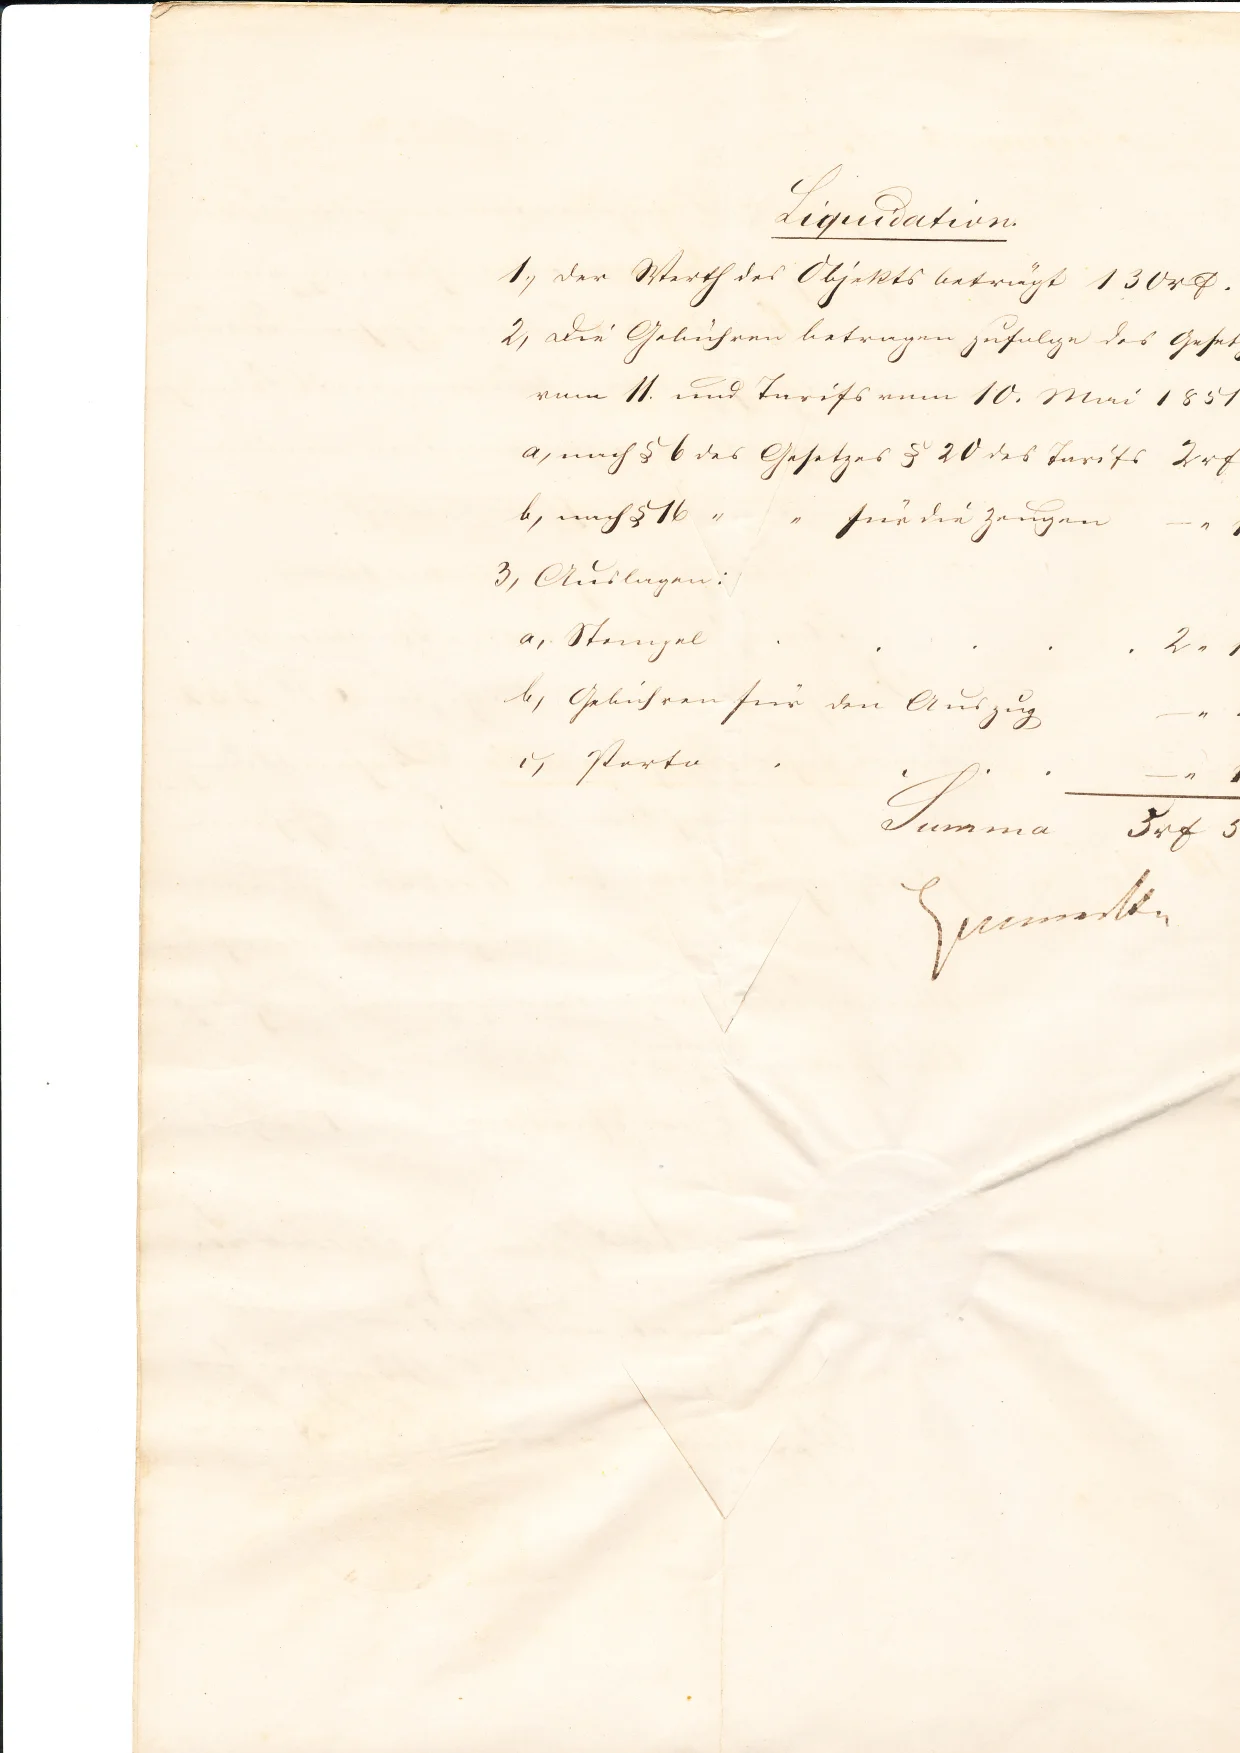 Liquidation.
1., Der Werth des Objekts beträgt 130 rf.
2, Die Gebühren betragen zufolge des Gesetz
vom 11. und Tarifs vom 10. Mai 1851
a, nach § 6 des Gesetzes § 20 des Tarifs 2 rf
b, nach § 16 " " für die Zeugen — "
3, Auslagen:
a, Stempel . . . . . 2 "
b, Gebühren für den Auszug — "
c, Porto . . . . — "
Summa 5 rf